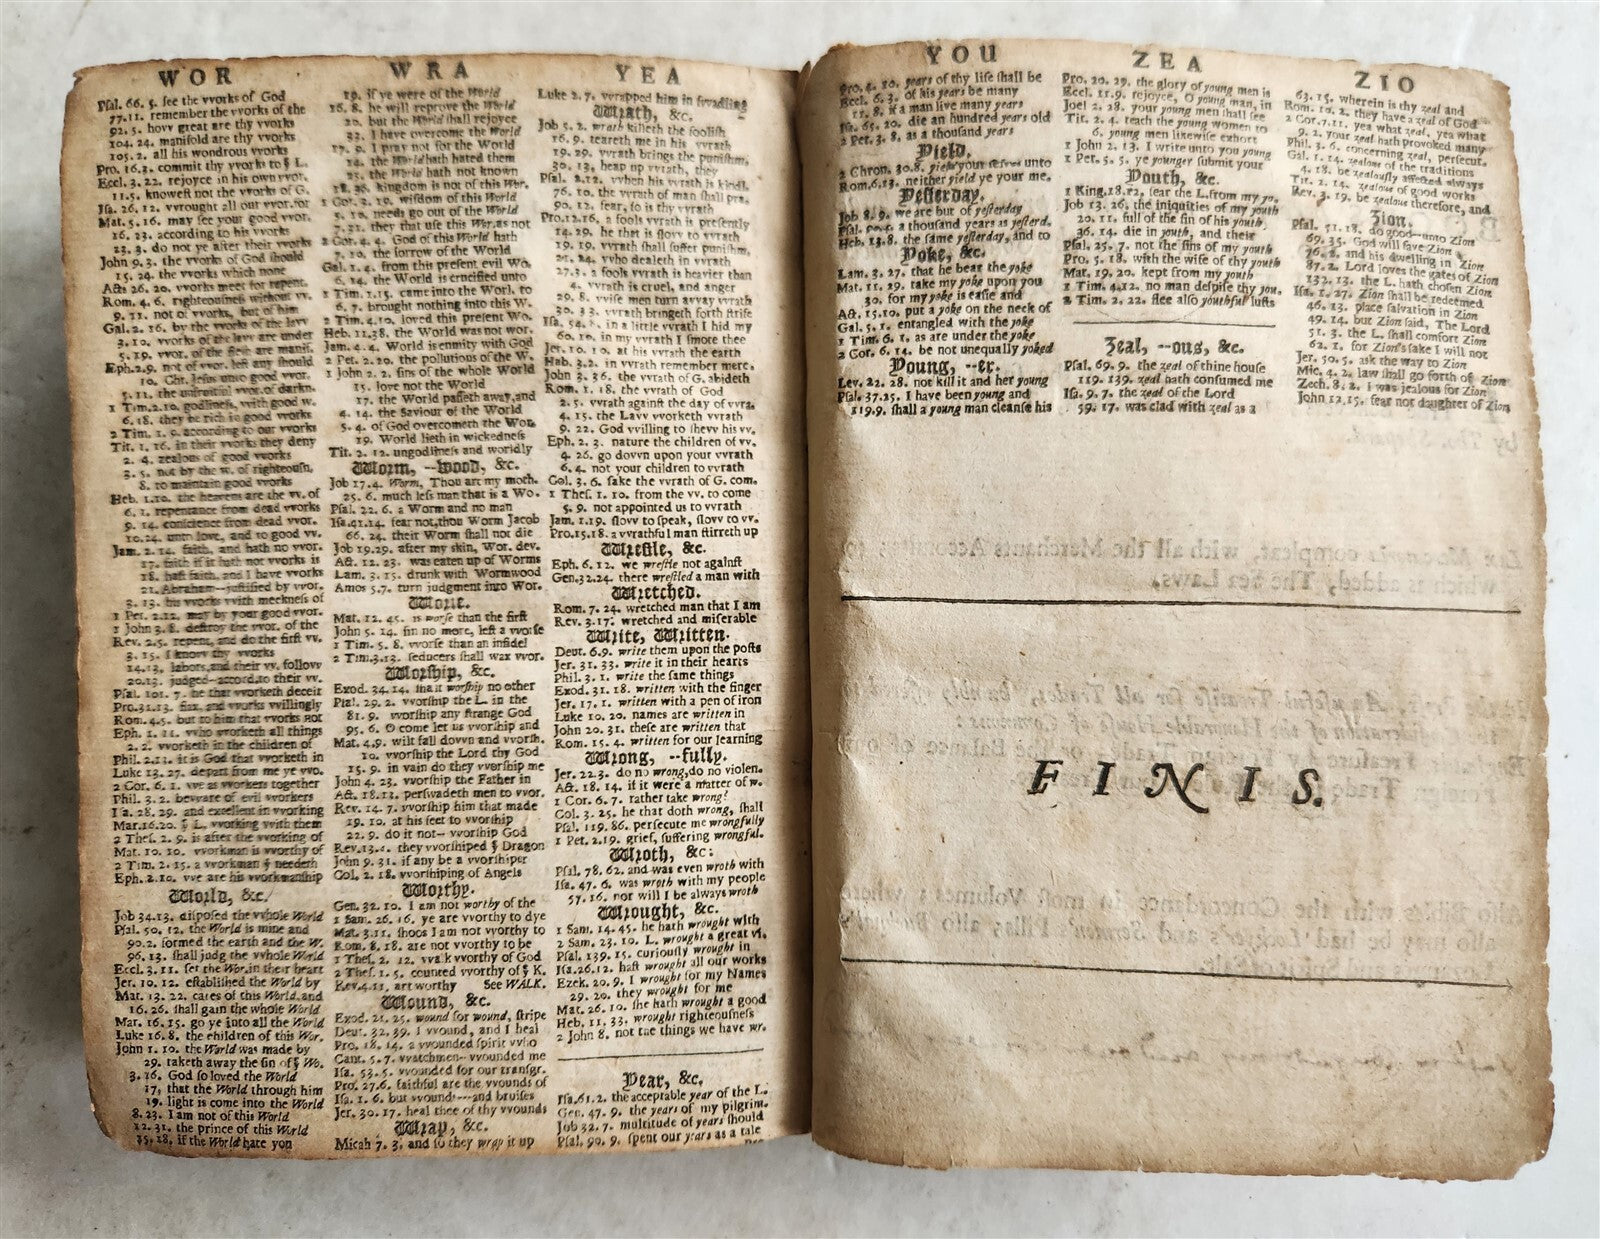 WOR
Psal. 66. 5. see the vvorks of God
77.11. remember the vvorks of the
92. 5. hovv great are thy vvorks
104. 24. manifold are thy vvorks
105. 2. all his wondrous vvorks
Pro. 16.3. commit thy vvorks to ẏ L.
Eccl. 3. 22. rejoyce in his own vvor.
11.5. knoweſt not the vvorks of G.
Iſa. 26. 12. vvrought all our vvor. for
Mat. 5. 16. may ſee your good vvor.
16. 23. according to his vvorks
23. 3. do not ye after their vvorks
John 9. 3. the vvorks of God ſhould
15. 24. the vvorks which none
Acts 26. 20. vvorks meet for repent.
Rom. 4. 6. righteouſneſs without vv.
9. 11. not of vvorks, but of him
Gal. 2. 16. by the vvorks of the lavv
3. 10. vvorks of the lavv are under
5. 19. vvor. of the fleſh are maniſ.
Eph.2.9. not of vvor. leſt any ſhould
10. Chr. Jeſus unto good vvor.
5. 11. the unfruitful vvor. of darkn.
1 Tim.2.10. godlineſs, with good w.
6. 18. they be rich in good vvorks
2 Tim. 1. 9. according to our vvorks
Tit. 1. 16. in their vvorks they deny
2. 4. zealous of good vvorks
3. 5. not by the w. of righteouſn.
8. to maintain good vvorks
Heb. 1.10. the heavens are the vv. of
6. 1. repentance from dead vvorks
9. 14. conſcience from dead vvor.
10.24. unto love, and to good vv.
Jam. 2. 14. faith, and hath no vvor.
17. faith if it hath not vvorks is
18. haſt faith, and I have vvorks
21. Abraham--juſtified by vvor.
3. 13. his vvorks vvith meekneſs of
1 Pet. 2.12. may by your good vvor.
1 John 3. 8. deſtroy the vvor. of the
Rev. 2.5. repent, and do the firſt vv.
3. 15. I know thy vvorks
14.13. labors, and their vv. follovv
20.13. judged--accord.to their vv.
Pſal. 101. 7. he that vvorketh deceit
Pro.31.13. flax, and vvorks vvillingly
Rom. 4.5. but to him that vvorks not
Eph. 1. 11. vvho vvorketh all things
2. 2. vvorketh in the children of
Phil. 2.13. it is God that vvorketh in
Luke 13. 27. depart from me ye vvo.
2 Cor. 6. 1. vve as vvorkers together
Phil. 3. 2. beware of evil vvorkers
Iſa. 28. 29. and excellent in vvorking
Mar.16.20. ẏ L. vvorking vvith them
2 Theſ. 2. 9. is after the vvorking of
Mat. 10. 10. vvorkman is vvorthy of
2 Tim. 2. 15. a vvorkman ẏ needeth
Eph. 2.10. vve are his vvorkmanſhip
World, &c.
Job 34.13. diſpoſed the vvhole World
Pſal. 50. 12. the World is mine and
90.2. formed the earth and the W.
96. 13. ſhall judg the vvhole World
Eccl. 3. 11. ſet the Wor. in their heart
Jer. 10. 12. eſtabliſhed the World by
Mat. 13. 22. cares of this World, and
16. 26. ſhall gain the whole World
Mar. 16. 15. go ye into all the World
Luke 16. 8. the children of this Wor.
John 1. 10. the World was made by
29. taketh away the ſin of ẏ Wo.
3. 16. God ſo loved the World
17. that the World through him
19. light is come into the World
8. 23. I am not of this World
12. 31. the prince of this World
15. 18. if the World hate you
WRA
19. if ye were of the World
16. 8. he will reprove the World
20. but the World ſhall rejoyce
33. I have overcome the World
17. 9. I pray not for the World
14. the World hath hated them
25. the World hath not known
18. 36. kingdom is not of this Wor.
1 Cor. 2. 19. wiſdom of this World
5. 10. needs go out of the World
7. 31. they that uſe this Wor. as not
2 Cor. 4. 4. God of this World hath
7. 10. the ſorrow of the World
Gal. 1. 4. from this preſent evil Wo.
6. 14. the World is crucified unto
1 Tim. 1.15. came into the Worl. to
6. 7. brought nothing into this W.
2 Tim. 4.10. loved this preſent Wo.
Heb. 11.38. the World was not wor.
Jam. 4. 4. World is enmity with God
2 Pet. 2. 20. the pollutions of the W.
1 John 2. 2. ſins of the whole World
15. love not the World
17. the World paſſeth away, and
4. 14. the Saviour of the World
5. 4. of God overcometh the Wor.
19. World lieth in wickedneſs
Tit. 2. 12. ungodlineſs and worldly
Worm, --wood, &c.
Job 17.4. Worm, Thou art my moth.
25. 6. much leſs man that is a Wo.
Pſal. 22. 6. a Worm and no man
Iſa.41.14. fear not, thou Worm Jacob
66. 24. their Worm ſhall not die
Job 19.29. after my skin, Wor. dev.
Act. 12. 23. was eaten up of Worms
Lam. 3. 15. drunk with Wormwood
Amos 5.7. turn judgment into Wor.
Worſe.
Mat. 12. 45. is worſe than the firſt
John 5. 14. ſin no more, leſt a vvorſe
1 Tim. 5. 8. vvorſe than an infidel
2 Tim.3.13. ſeducers ſhall wax vvor.
Worſhip, &c.
Exod. 34. 14. ſhalt worſhip no other
Pſal. 29. 2. vvorſhip the L. in the
81. 9. vvorſhip any ſtrange God
95. 6. O come let us vvorſhip and
Mat. 4.9. wilt fall dovvn and vvorſh.
10. vvorſhip the Lord thy God
15. 9. in vain do they vvorſhip me
John 4. 23. vvorſhip the Father in
Act. 18.13. perſwadeth men to vvor.
Rev. 14. 7. vvorſhip him that made
19. 10. at his feet to vvorſhip
22. 9. do it not-- vvorſhip God
Rev.13.4. they vvorſhiped ẏ Dragon
John 9. 31. if any be a vvorſhiper
Col. 2. 18. vvorſhiping of Angels
Worthy.
Gen. 32. 10. I am not worthy of the
1 Sam. 26. 16. ye are vvorthy to dye
Mat. 3.11. ſhoos I am not vvorthy to
Rom. 8. 18. are not vvorthy to be
1 Theſ. 2. 12. walk vvorthy of God
2 Theſ. 1. 5. counted vvorthy of ẏ K.
Rev. 4.11. art worthy See WALK.
Wound, &c.
Exod. 21. 25. wound for wound, ſtripe
Deut. 32. 39. I vvound, and I heal
Pro. 18. 14. a vvounded ſpirit vvho
Cant. 5. 7. vvatchmen--vvounded me
Iſa. 53. 5. vvounded for our tranſgr.
Pro. 27.6. faithful are the vvounds of
Iſa. 1. 6. but vvounds---and bruiſes
Jer. 30. 17. heal thee of thy vvounds
Wrap, &c.
Micah 7. 3. and ſo they wrap it up
YEA
Luke 2. 7. vvrapped him in ſvvadling
Wrath, &c.
Job 5. 2. wrath killeth the fooliſh
16. 9. teareth me in his vvrath
19. 29. vvrath brings the puniſhm.
36. 13. heap up vvrath, they
Pſal. 2.12. vvhen his vvrath is kindl.
76. 10. the vvrath of man ſhall pra.
90. 12. fear, ſo is thy vvrath
Pro.12.16. a fools vvrath is preſently
14. 29. he that is ſlovv to vvrath
19. 19. vvrath ſhall ſuffer puniſhm.
21. 24. vvho dealeth in vvrath
27.3. a fools vvrath is heavier than
4. vvrath is cruel, and anger
29. 8. vviſe men turn avvay vvrath
30. 33. vvrath bringeth forth ſtrife
Iſa. 54. 8. in a little vvrath I hid my
60. 10. in my vvrath I ſmote thee
Jer. 10. 10. at his vvrath the earth
Hab. 3.2. in vvrath remember merc.
John 3. 36. the vvrath of G. abideth
Rom. 1. 18. the vvrath of God
2. 5. vvrath againſt the day of vvra.
4. 15. the Lavv vvorketh vvrath
9. 22. God vvilling to ſhevv his vv.
Eph. 2. 3. nature the children of vv.
4. 26. go dovvn upon your vvrath
6. 4. not your children to vvrath
Col. 3. 6. ſake the vvrath of G. com.
1 Theſ. 1. 10. from the vv. to come
5. 9. not appointed us to vvrath
Jam. 1.19. ſlovv to ſpeak, ſlovv to vv.
Pro.15.18. a vvrathful man ſtirreth up
Wreſtle, &c.
Eph. 6. 12. we wreſtle not againſt
Gen.32.24. there wreſtled a man with
Wretched.
Rom. 7. 24. wretched man that I am
Rev. 3.17. wretched and miſerable
Write, Written.
Deut. 6.9. write them upon the poſts
Jer. 31. 33. write it in their hearts
Phil. 3. 1. write the ſame things
Exod. 31. 18. written with the finger
Jer. 17. 1. written with a pen of iron
Luke 10. 20. names are written in
John 20. 31. theſe are written that
Rom. 15. 4. written for our learning
Wrong, --fully.
Jer. 22.3. do no wrong, do no violen.
Act. 18. 14. if it were a matter of w.
1 Cor. 6. 7. rather take wrong?
Col. 3. 25. he that doth wrong, ſhall
Pſal. 119. 86. perſecute me wrongfully
1 Pet. 2.19. grief, ſuffering wrongful.
Wroth, &c.
Pſal. 78. 62. and was even wroth with
Iſa. 47. 6. was wroth with my people
57. 16. nor will I be always wroth
Wrought, &c.
1 Sam. 14. 45. he hath wrought with
2 Sam. 23. 10. L. wrought a great vi.
Pſal. 139. 15. curiouſly wrought in
Iſa.26.12. haſt wrought all our works
Ezek. 20. 9. I wrought for my Names
29. 20. they wrought for me
Mat. 26. 10. ſhe hath wrought a good
Heb. 11. 33. wrought righteouſneſs
2 John 8. not the things we have wr.
Year, &c.
Iſa.61.2. the acceptable year of the L.
Gen. 47. 9. the years of my pilgrim.
Job 32. 7. multitude of years ſhould
Pſal. 90. 9. ſpent our years as a tale
Pro
YOU
Pro. 4. 10. years of thy life ſhall be
Eccl. 6. 3. of his years be many
11. 8. if a man live many years
Iſa. 65. 20. die an hundred years old
2 Pet. 3. 8. as a thouſand years
Yield.
2 Chron. 30.8. yield your ſelves unto
Rom.6.13. neither yield ye your me.
Yeſterday.
Job 8. 9. we are but of yeſterday
Pſal. 90. 4. a thouſand years as yeſterd.
Heb. 13.8. the ſame yeſterday, and to
Yoke, &c.
Lam. 3. 27. that he bear the yoke
Mat. 11. 29. take my yoke upon you
30. for my yoke is eaſie and
Act. 15.10. put a yoke on the neck of
Gal. 5. 1. entangled with the yoke
1 Tim. 6. 1. as are under the yoke
2 Cor. 6. 14. be not unequally yoked
Young, --er.
Lev. 22. 28. not kill it and her young
Pſal. 37.25. I have been young and
119.9. ſhall a young man cleanſe his
ZEA
Pro. 20. 29. the glory of young men is
Eccl. 11.9. rejoyce, O young man, in
Joel 2. 28. your young men ſhall ſee
Tit. 2. 4. teach the young women to
6. young men likewiſe exhort
1 John 2. 13. I write unto you young
1 Pet. 5. 5. ye younger ſubmit your
Youth, &c.
1 King.18.12. fear the L. from my yo.
Job 13. 26. the iniquities of my youth
20. 11. full of the ſin of his youth,
36. 14. die in youth, and their
Pſal. 25. 7. not the ſins of my youth
Pro. 5. 18. with the wife of thy youth
Mat. 19. 20. kept from my youth
1 Tim. 4.12. no man deſpiſe thy you.
2 Tim. 2. 22. flee alſo youthful luſts
Zeal, --ous, &c.
Pſal. 69. 9. the zeal of thine houſe
119. 139. zeal hath conſumed me
Iſa. 9. 7. the zeal of the Lord
59. 17. was clad with zeal as a
ZIO
63. 15. wherein is thy zeal and
Rom. 10. 2. they have a zeal of God
2 Cor.7.11. yea what zeal, yea what
9. 2. your zeal hath provoked many
Phil. 3. 6. concerning zeal, perſecut.
Gal. 1. 14. zealous of the traditions
4. 18. be zealouſly affected always
Tit. 2. 14. zealous of good works
Rev. 3. 19. be zealous therefore, and
Zion.
Pſal. 51.18. do good--unto Zion
69. 35. God will ſave Zion
76. 8. and his dwelling in Zion
87. 2. Lord loves the gates of Zion
132. 13. the L. hath choſen Zion
Iſa. 1. 27. Zion ſhall be redeemed
46. 13. place ſalvation in Zion
49. 14. but Zion ſaid, The Lord
51. 3. the L. ſhall comfort Zion
62. 1. for Zion's ſake I will not
Jer. 50. 5. ask the way to Zion
Mic. 4. 2. law ſhall go forth of Zion
Zech. 8. 2. I was jealous for Zion
John 12.15. fear not daughter of Zion
FINIS.